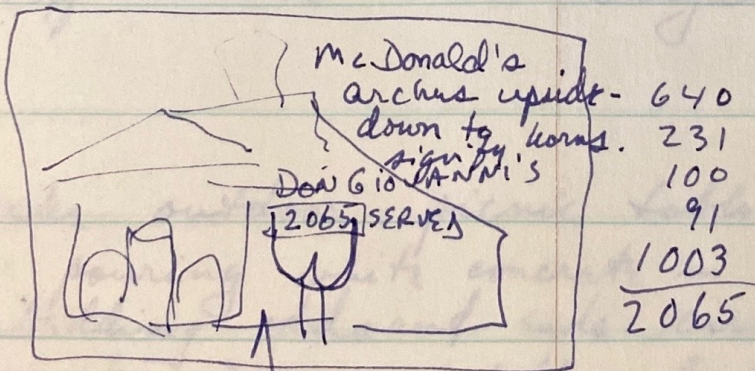 McDonald's
arches upside-
down to
signify horns.
DON GIOVANNI'S
2065 SERVED
640
231
100
91
1003
2065